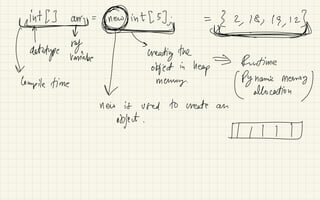 int[] arr = new int[5]; = { 2, 18, 19, 12 }
datatype
ref variable
creating the object in heap memory
Compile time
⇒ Runtime
(Dynamic memory allocation)
new is used to create an object.